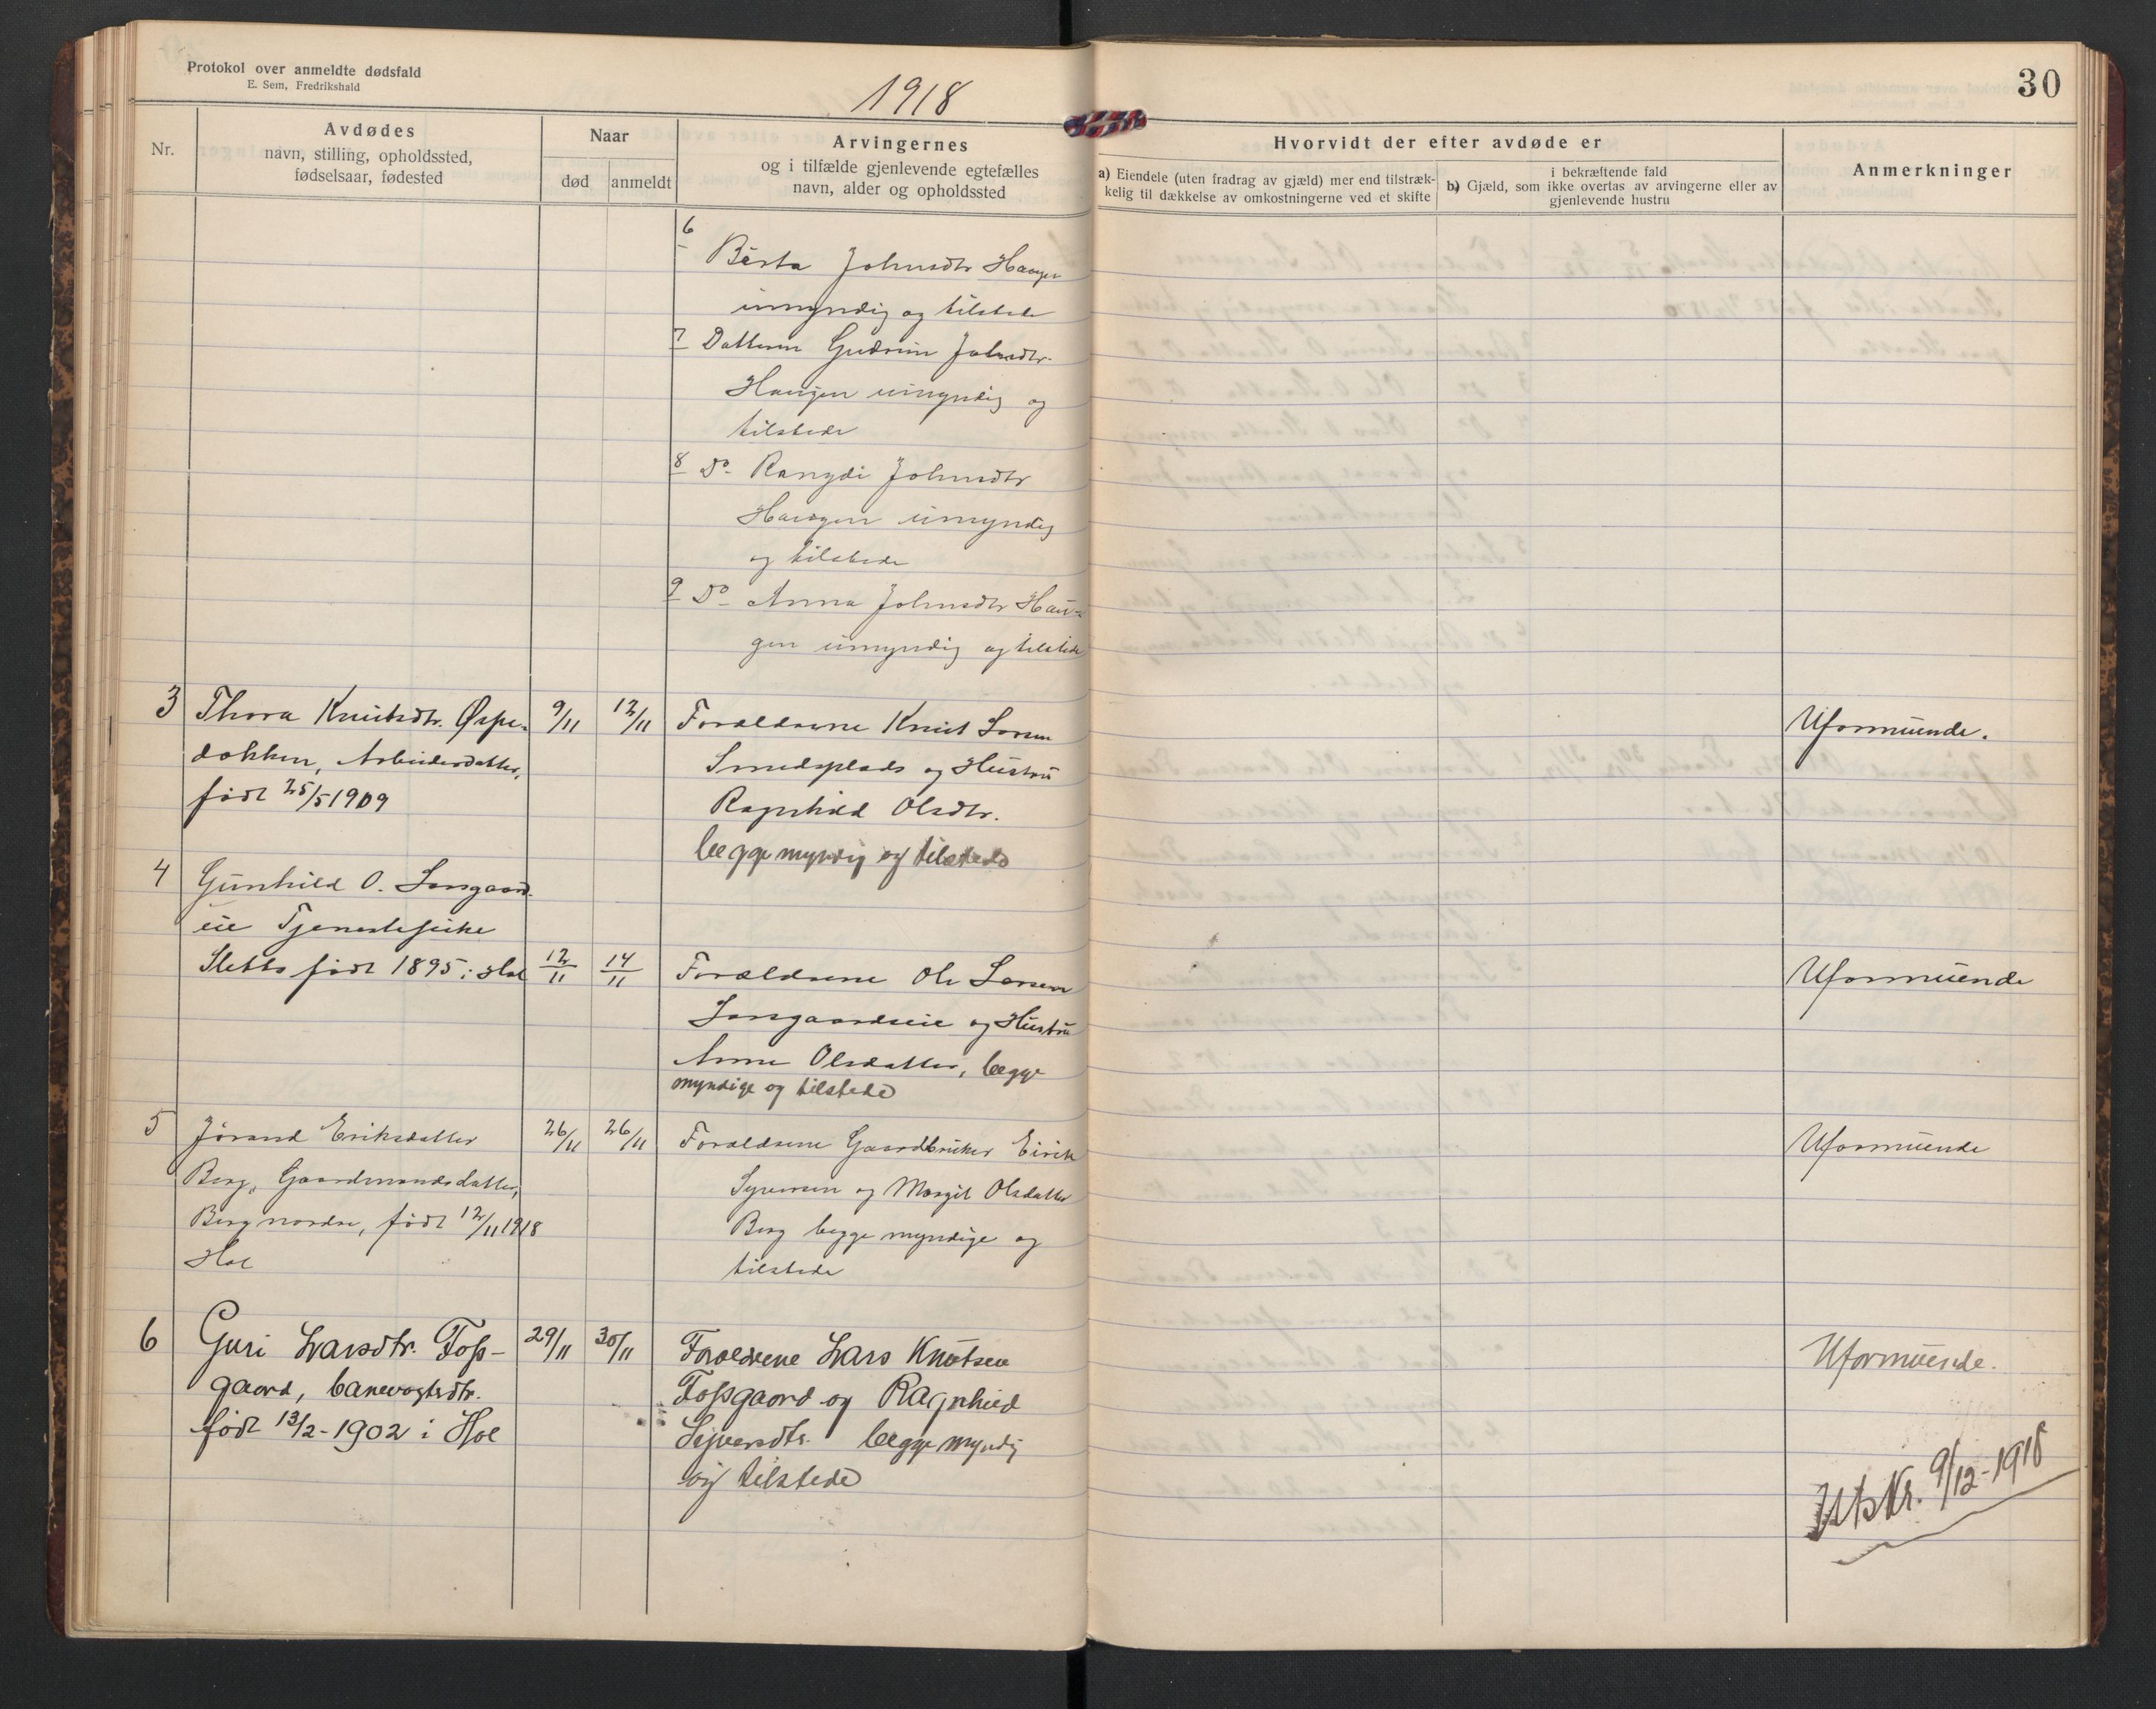 Protokol over anmeldte dødsfald
E. Sem, Fredrikshald
1918
30
Nr.
Avdødes
navn, stilling, opholdssted,
fødselsaar, fødested
Naar
død
anmeldt
Arvingernes
og i tilfælde gjenlevende egtefælles
navn, alder og opholdssted
Hvorvidt der efter avdøde er
a) Eiendele (uten fradrag av gjæld) mer end tilstræk-
kelig til dækkelse av omkostningerne ved et skifte
i bekræftende fald
b) Gjæld, som ikke overtas av arvingerne eller av
gjenlevende hustru
Anmerkninger
6
Birta Johnsdtr Haugen
umyndig og tilstede
7 Datteren Gudrun Johnsdtr.
Haugen umyndig og
tilstede
8 Do Rangdi Johnsdtr
Haugen umyndig
og tilstede
9 Do Anna Johnsdtr Hau-
gen umyndig og tilstede
3 Thora Knutsdtr. Øspe-
dokken, Arbeiderdatter,
født 25/5 1909
9/11
12/11
Forældrene Knut Larsen
Smedsplads og Hustru
Ragnhild Olsdtr.
begge myndig og tilstede
Uformuende.
4 Gunhild O. Jonsgaard-
eie Tjenestepike
Sletto født 1895 i Hol
12/11
14/11
Forældrene Ole Larsen
Jonsgaardseie og Hustru
Anne Olsdatter, begge
myndige og tilstede
Uformuende
5 Jørand Eriksdatter
Berg, Gaardmandsdatter,
Berg nordre, født 12/11 1918
Hol
26/11
26/11
Forældrene Gaardbruker Eirik
og Margit Olsdatter
Berg begge myndige og
tilstede
Uformuende
6 Guri Larsdtr. Foss-
gaard, banevogterdtr.
født 13/2-1902 i Hol
29/11
30/11
Forældrene Lars Knutsen
Fossgaard og Ragnhild
Sejversdtr. begge myndig
og tilstede
Uformuende.
Utskr. 9/12-1918